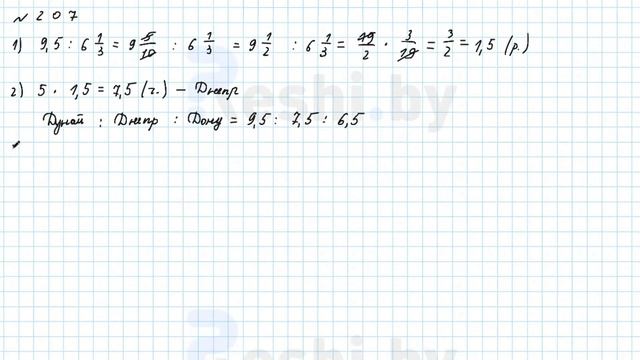 № 207
1) 9,5 : 6 1/3 = 9 5/10 : 6 1/3 = 9 1/2 : 6 1/3 = 19/2 · 3/19 = 3/2 = 1,5 (р.)
2) 5 · 1,5 = 7,5 (г.) – Днепр
Дунай : Днепр : Дону = 9,5 : 7,5 : 6,5
Reshi.by